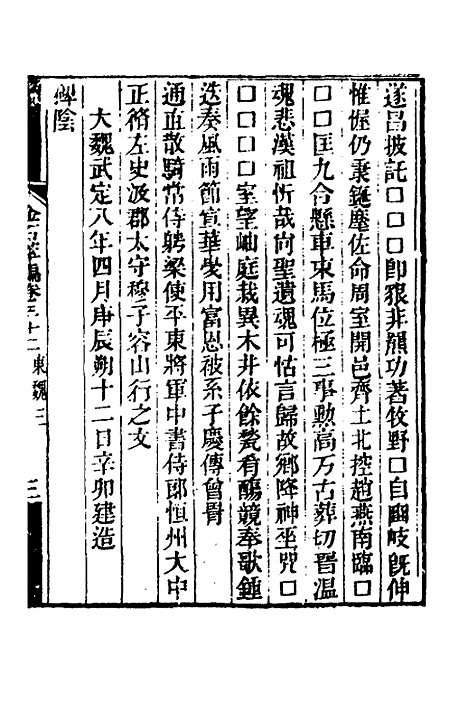 遂昌披託□□□卽猥非顏功著牧野□自國岐旣伸
惟偓仍秉鉞麾佐命周室開邑齊土北控趙燕南臨□
□□匡九合懸車束馬位極三事勲高万古葬切晉溫
魂悲漢祖忻哉尚聖遺魂可怙言歸故鄉降神巫咒□
□□□□室望岫庭栽異木井依餘甃肴醑競奉歌鍾
迭奏風雨節宣華叟用富恩被系子慶傳曾胥
通直散騎常侍聘梁使平東將軍中書侍郎恒州大中
正脩左史汲郡太守穆子容山行之文
大魏武定八年四月庚辰朔十二日辛卯建造
碑陰
金石萃編卷三十二 東魏三
三